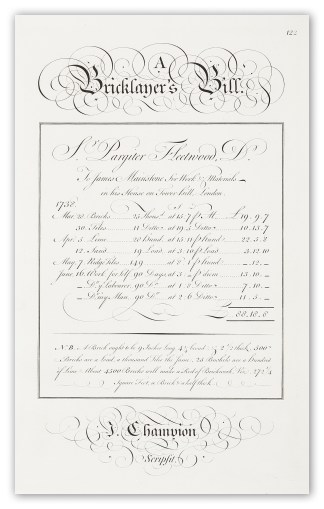 122
A
Bricklayer's Bill.
Sr. Pargiter Fleetwood, Dr.
To James Munstone For Work & Materials
in his House on Tower hill, London
1730.
Mar. 20 Bricks 25 Thous.d at 15.7 p. M. £ 19.9.7
30 Tiles 11 Ditto at 19.5 Ditto 10.13.7
Apr. 5 Lime 20 Hund. at 11 p. Hund.
12 Sand 19 Load at 3.10 p. Load 3.12.10
May 7 Ridge tiles 149 at 8 p. Hund. .12.
June 16 Work for self 90 Days at 3 p. diem 13.10.
Do. Labourer 90 Do. at 1.8 Ditto 7.10.
Do. my Man 90 Do. at 2.6 Ditto 11.5.
88.18.6
N.B. A Brick ought to be 9 Inches long 4½ broad & 2¼ thick. 500
Bricks are a Load, a thousand Tiles the same. 25 Bushels are a hundred
of Lime. About 4500 Bricks will make a Rod of Brickwork, Viz. 272¼
Square Feet, a Brick & half thick.
J. Champion
Scripsit.